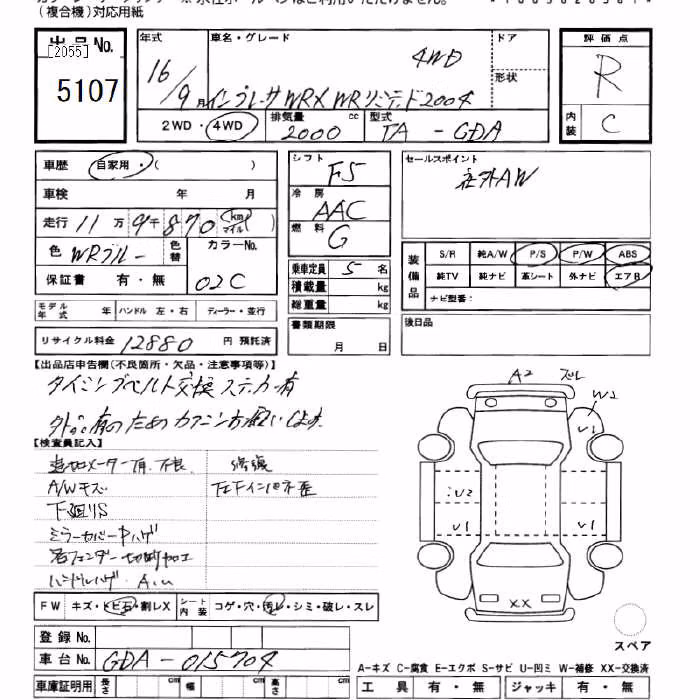 (複合機)対応用紙
出品No.
[2055]
5107
年式
16/9月
車名・グレード
4WD
インプレッサ WRX WRリミテッド2004
ドア
形状
評価点
R
内装
C
2WD・4WD
排気量 2000 cc
型式 TA-GDA
車歴 自家用・( )
車検 年 月
走行 11万9千870 km マイル
色 WRブルー
色替
カラーNo. 02C
保証書 有・無
シフト F5
冷房 AAC
燃料 G
乗車定員 5 名
積載量 kg
総重量 kg
セールスポイント
社外AW
装備品
S/R 純A/W P/S P/W ABS
純TV 純ナビ 革シート 外ナビ エアB
ナビ型番:
モデル年式 年 ハンドル 左・右 ディーラー・並行
リサイクル料金 12880 円 預託済
書類期限 月 日
後日品
【出品店申告欄(不良箇所・欠品・注意事項等)】
タイミングベルト交換 ステッカー有
【検査員記入】
A/Wキズ
下廻りS
ミラーカバー中ハゲ
右フェンダー切断加工
ハンドルハゲ
修復
A2
W2
U1
U2
U1
U1
XX
FW キズ・トビ石・割レX シート内装 コゲ・穴・汚レ・シミ・破レ・スレ
登録No.
車台No. GDA-015704
車庫証明用 長さ cm 幅 cm 高さ cm
スペア
A-キズ C-腐食 E-エクボ S-サビ U-凹ミ W-補修 XX-交換済
工具 有・無 ジャッキ 有・無